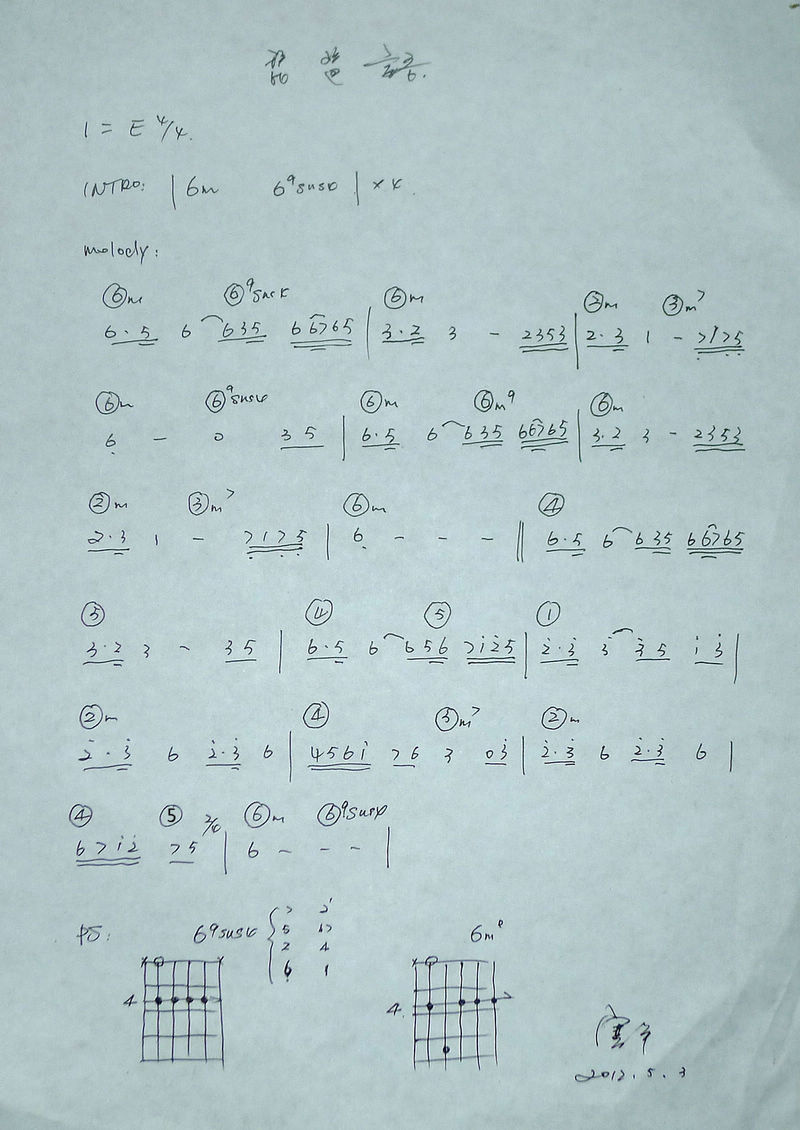 琵琶語
1 = E 4/4.
INTRO: | 6m 6⁹sus4 | × 4.
melody:
⑥m ⑥⁹sus4 ⑥m ②m ③m⁷
6·5 6 635 66765 | 3·2 3 - 2353 | 2·3 1 - 7175
⑥m ⑥⁹sus4 ⑥m ⑥m⁹ ⑥m
6 - 0 35 | 6·5 6 635 66765 | 3·2 3 - 2353
②m ③m⁷ ⑥m ④
2·3 1 - 7175 | 6 - - - || 6·5 6 635 66765
③ ④ ⑤ ①
3·2 3 - 35 | 6·5 6 656 7i̇2̇5 | 2̇·3̇ 3̇ 3̇5 i̇3̇ |
②m ④ ③m⁷ ②m
2̇·3̇ 6 2̇·3̇ 6 | 456i̇ 76 3 03̇ | 2̇·3̇ 6 2̇·3̇ 6 |
④ ⑤ ⑥m ⑥⁹sus4
67i̇2̇ 75 | 6 - - - |
PS: 6⁹sus4 { 7 2 6m⁹
5
2 4
6 1
4 4.
2012.5.3